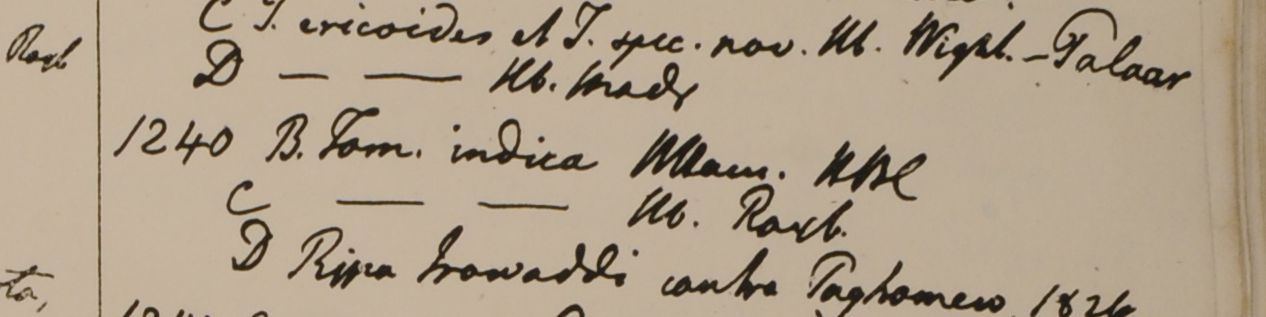 Roxb
C T. ericoides et T. spec. nov. Hb. Wight. - Palaar
D — — Hb. Madr
1240 B. Tam. indica HBC
C — — Hb. Roxb.
D Ripa Irawaddi contra 1826
ta,